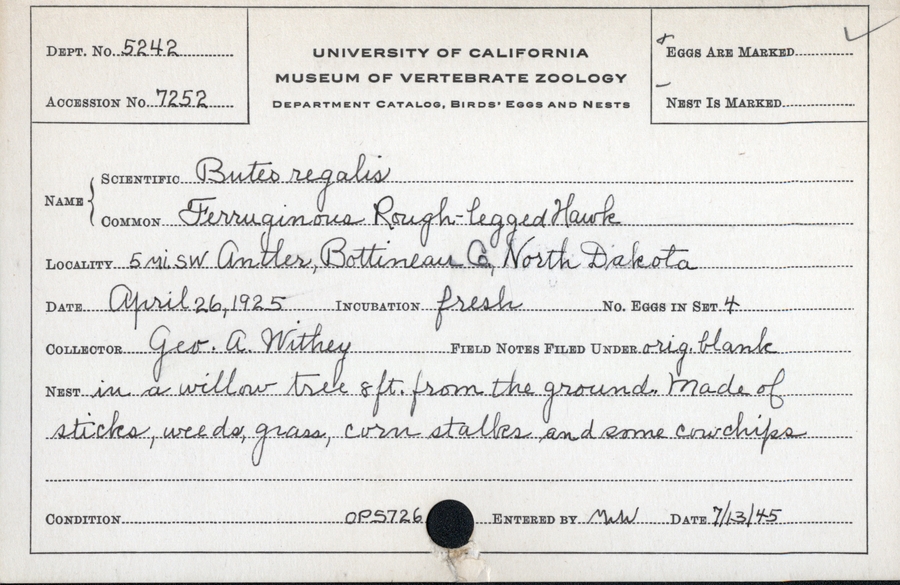 Dept. No. 5242
Accession No. 7252
UNIVERSITY OF CALIFORNIA
MUSEUM OF VERTEBRATE ZOOLOGY
Department Catalog, Birds' Eggs and Nests
+ Eggs Are Marked ✓
– Nest Is Marked
Name { Scientific Buteo regalis
Common Ferruginous Rough-legged Hawk
Locality 5 mi. SW Antler, Bottineau Co, North Dakota
Date April 26, 1925 Incubation fresh No. Eggs in Set 4
Collector Geo. A. Withey Field Notes Filed Under orig. blank
Nest in a willow tree 8 ft. from the ground. Made of
sticks, weeds, grass, corn stalks and some cowchips
Condition OPS726 Entered by MW Date 7/13/45